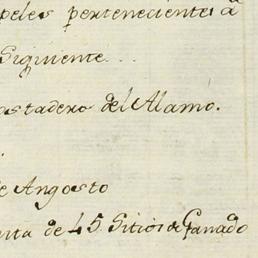 peles pertenecientes à
Siguiente...
astadero del Alamo.
e Angosto
de 45. Sitios de Ganado